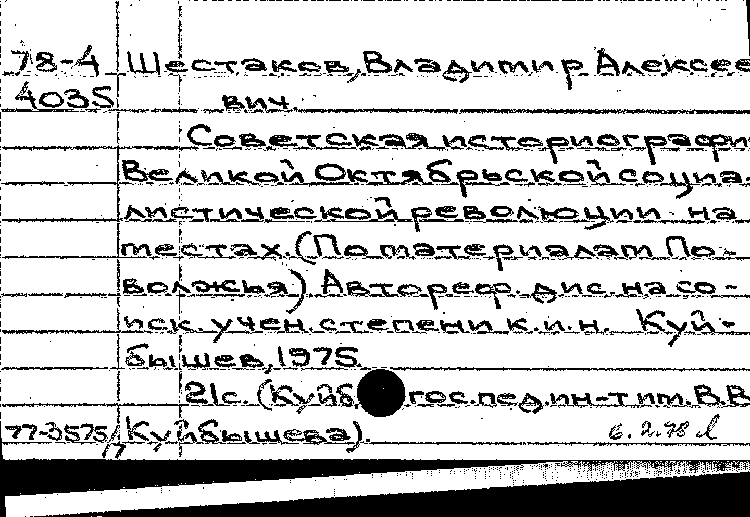 78-4 Шестаков, Владимир Алексее
4035 вич.
Советская историографи
Великой Октябрьской социа-
листической революции на
местах. (По материалам По-
волжья) Автореф. дис. на со-
иск. учен. степени к.и.н. Куй-
бышев, 1975.
21с. (Куйб. гос. пед. ин-т им. В.В
77-3575/17 Куйбышева).
6.2.78